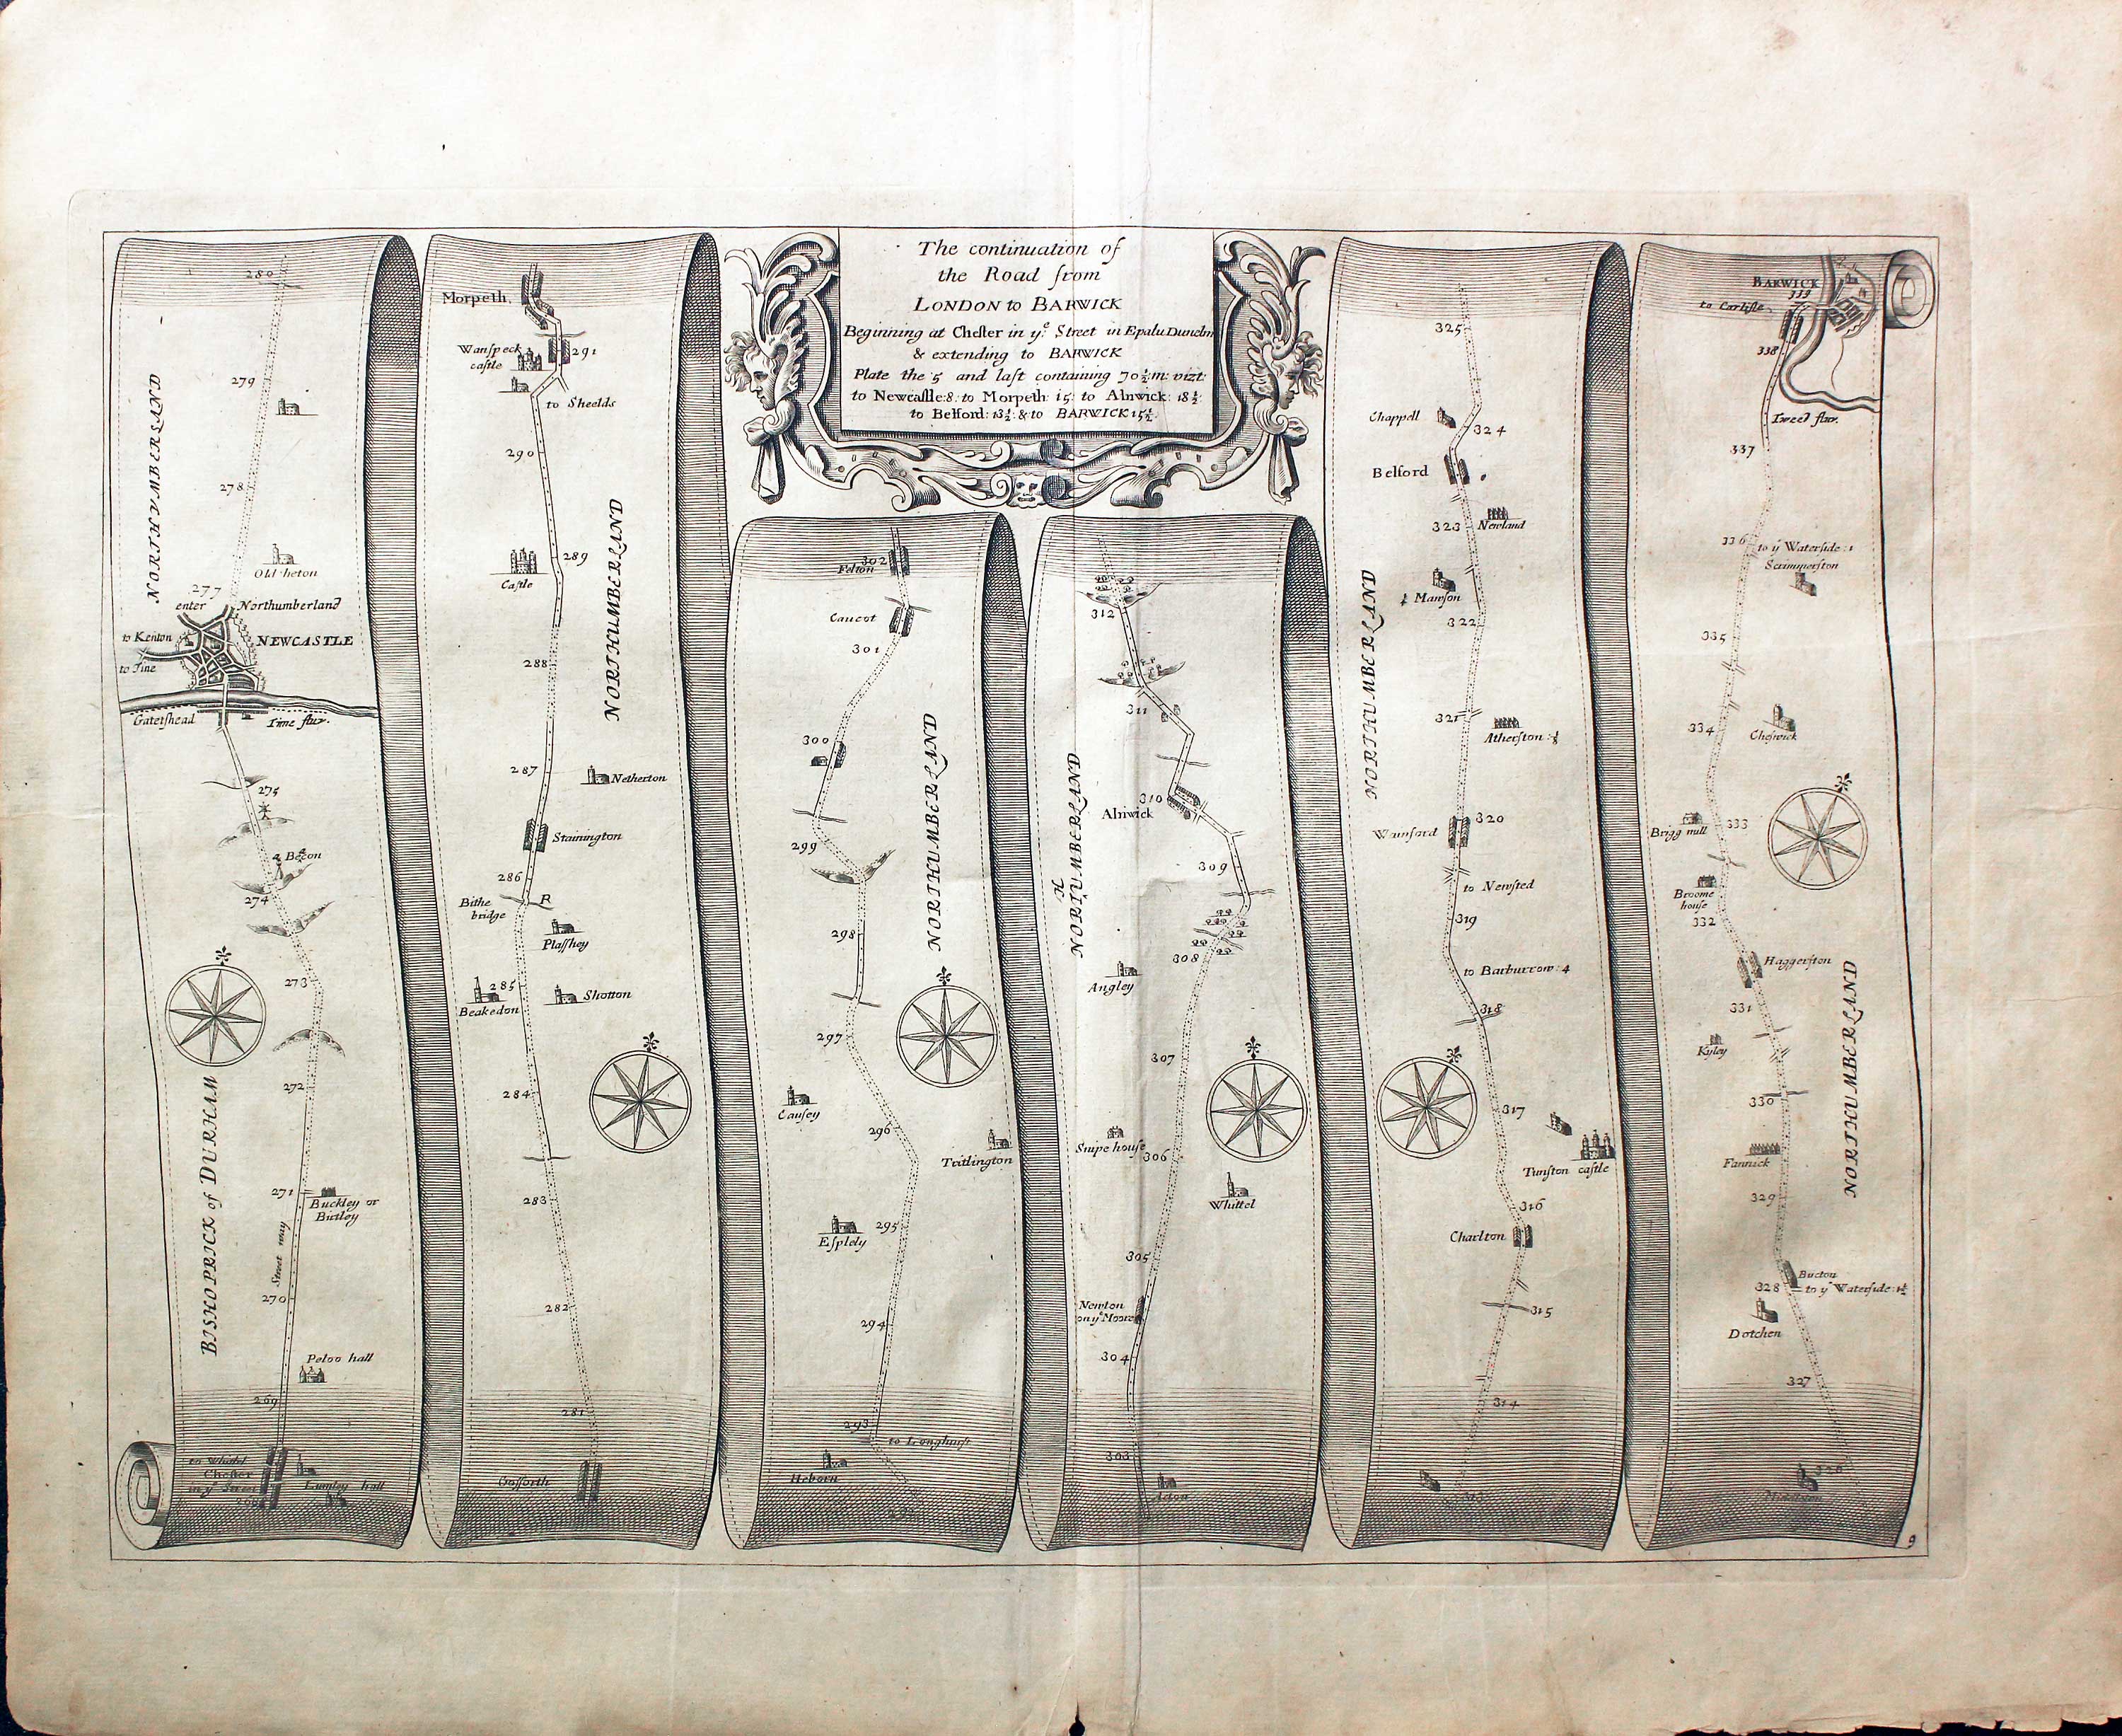 The continuation of
the Road from
LONDON to BARWICK
Beginning at Chester in yͤ Street in Epatu Dunelm
& extending to BARWICK
Plate the 5 and last containing 70½ m: vizt:
to Newcastle: 8. to Morpeth: 15: to Alnwick: 18½
to Belford: 13½: & to BARWICK 15½.
280
279
278
NORTHUMBERLAND
Old heton
277
enter Northumberland
to Kenton
NEWCASTLE
to Tine
Gateshead
Tine fluv.
275
a Becon
274
273
272
BISHOPRICK of DURHAM
271
Buckley or
Birtley
Street way
270
Peloo hall
269
Chester
in yͤ Street
Lumley hall
Morpeth
Wanspeck
castle
291
to Sheelds
290
289
Castle
NORTHUMBERLAND
288
287
Netherton
Stainington
286
Bithe
bridge
R
Plasshey
285
Beakedon
Shotton
284
283
282
281
Gosforth
302
Felton
Caucot
301
300
299
NORTHUMBERLAND
298
297
Causey
296
Tritlington
295
Esplely
294
293
to Longhurst
Heborn
312
311
310
Alnwick
309
NORTHUMBERLAND
308
Angley
307
Snipe house
306
Whittel
305
Newton
on yͤ Moore
304
303
Acton
325
Chappell
324
Belford
323
Newland
Mawson
322
NORTHUMBERLAND
321
Atherston: ½
320
Warnford
to Newsted
319
to Barburrow: 4
318
317
Tunston castle
316
Charlton
315
314
BARWICK
339
to Carlisle
338
Tweed fluv.
337
336
to yͤ Waterside: 1
Scrimmerston
335
334
Cheswick
333
Brigg mill
Broome
house
332
Haggerston
331
Kyley
330
NORTHUMBERLAND
Fannick
329
Bucton
328
to yͤ Waterside: 1½
Dotchen
327
326
9